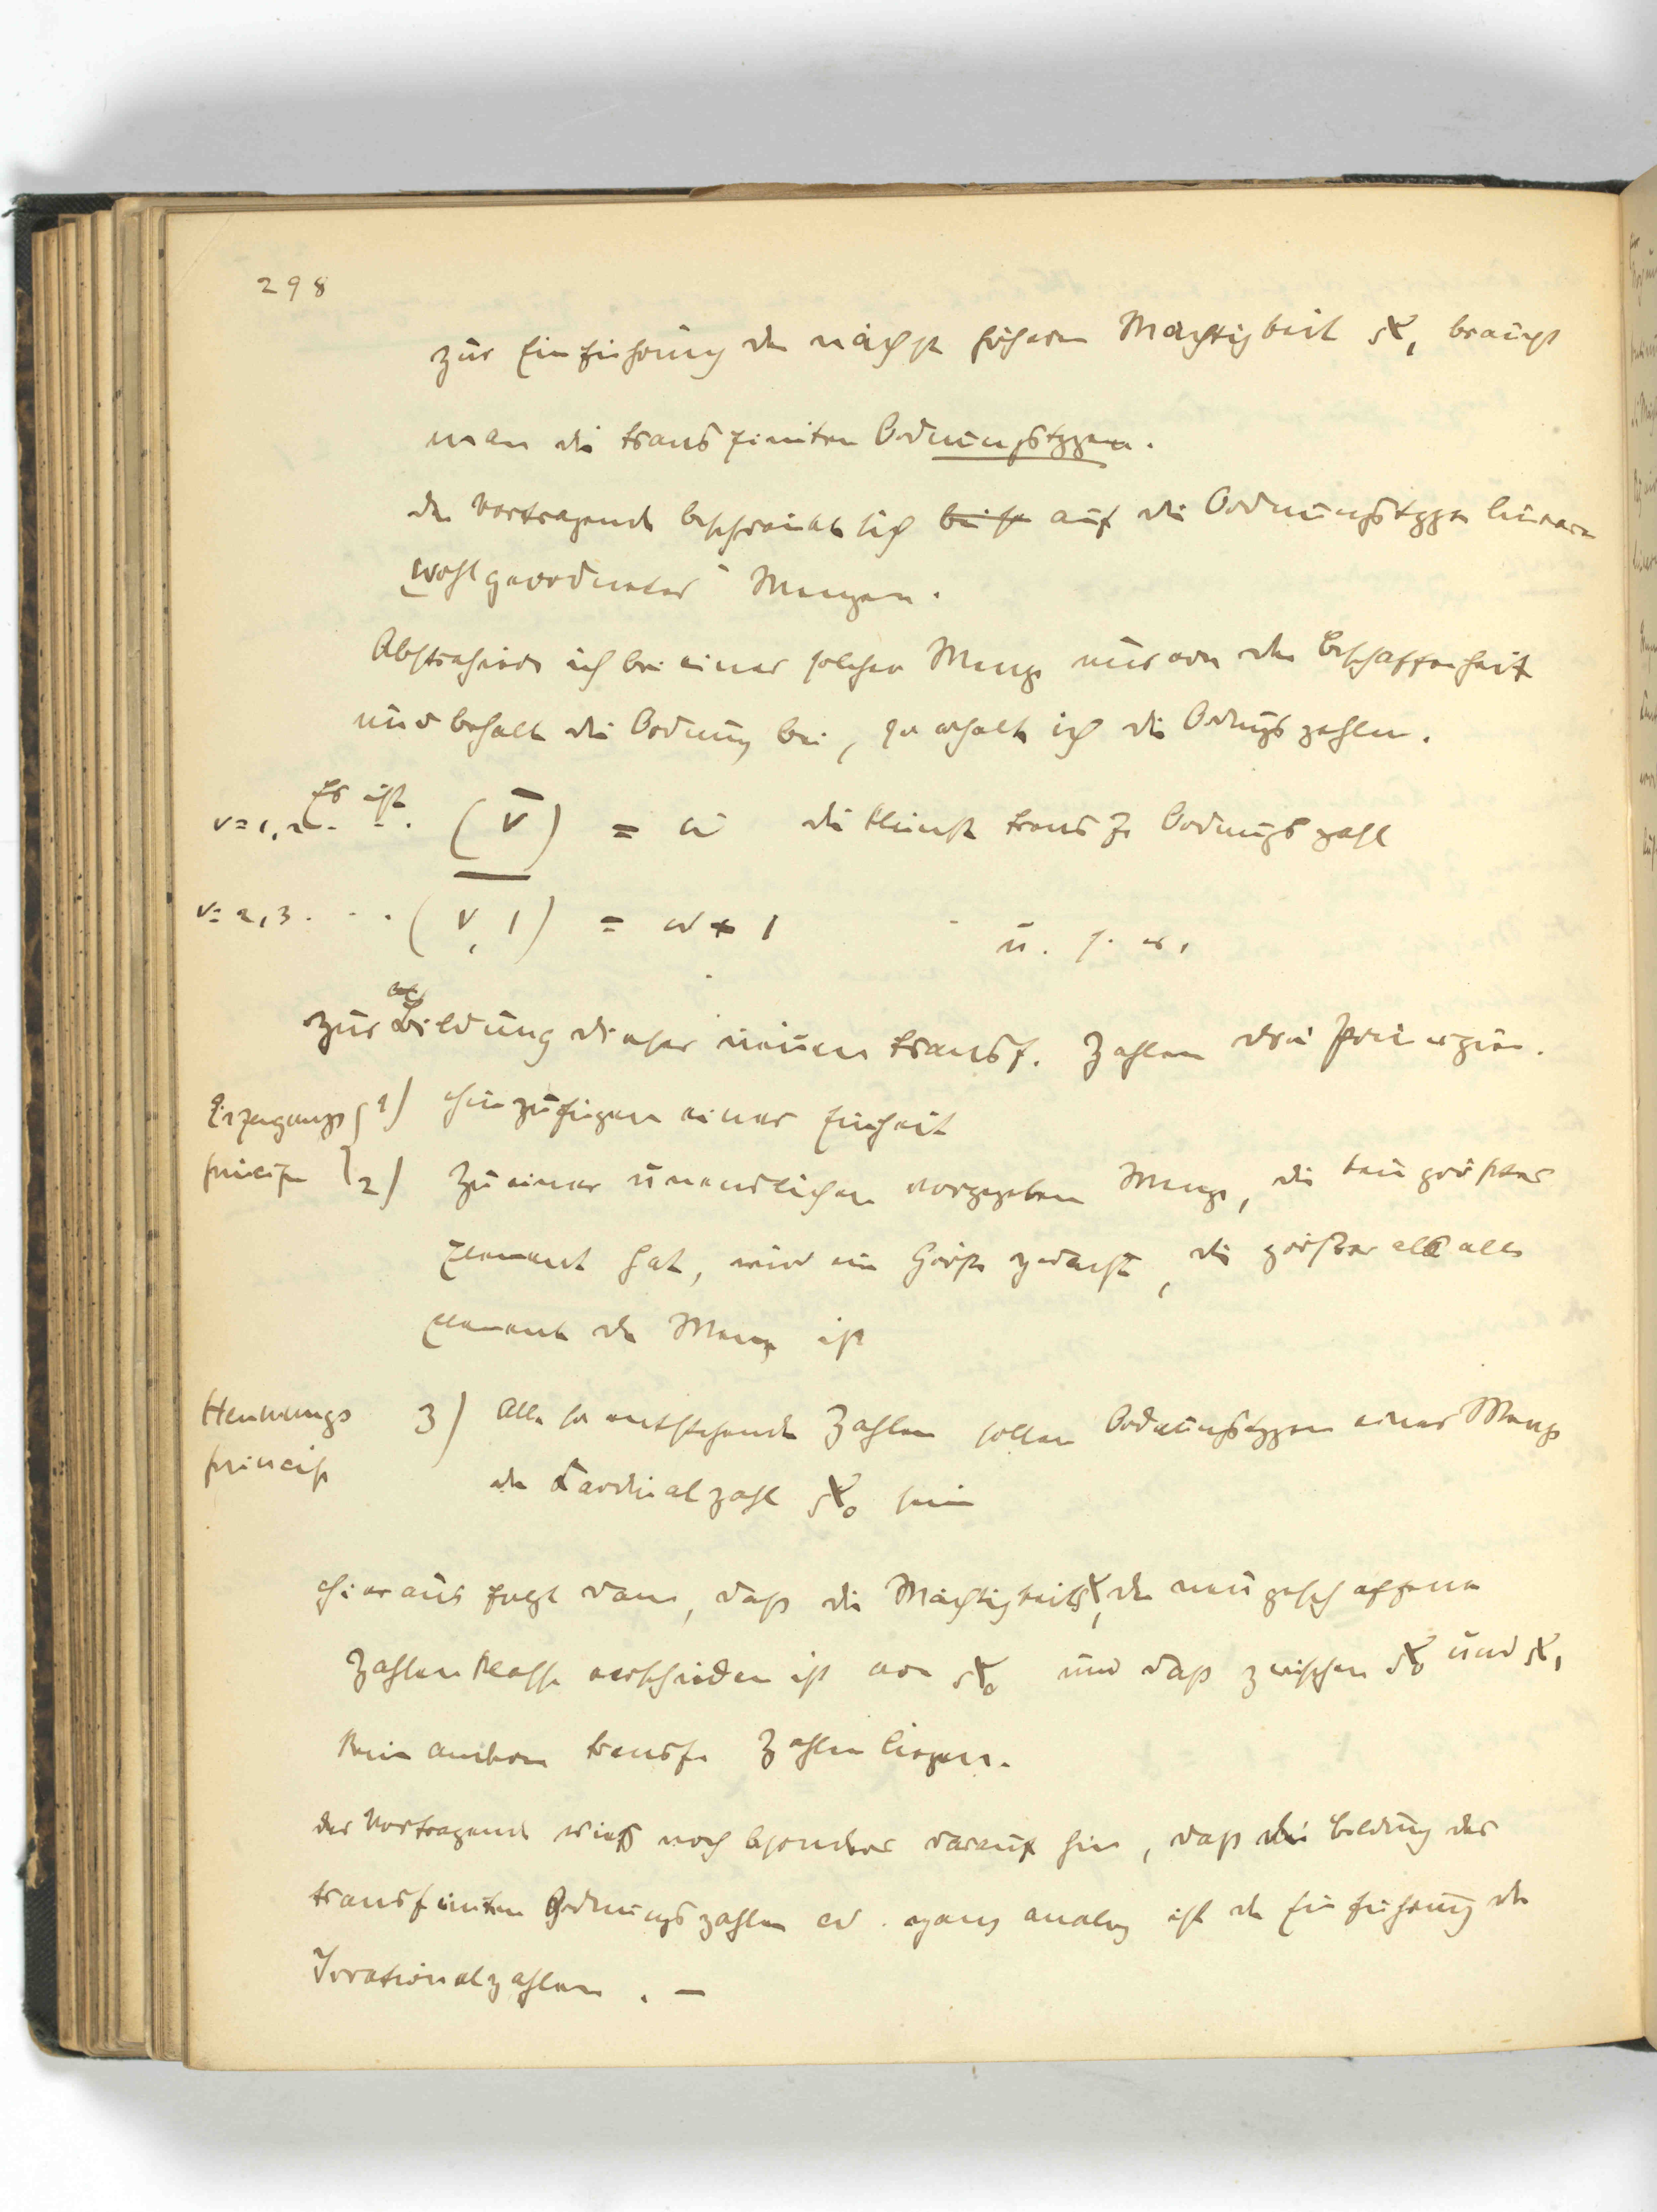 298
zur Einführung der nächst höheren Mächtigkeit ℵ₁ braucht
man die transfiniten Ordnungstypen.
Der Vortragende beschränkt sich auf die Ordnungstypen linearer
wohlgeordneter Mengen.
Abstrahiere ich bei einer solchen Menge nur von der Beschaffenheit
und behalte die Ordnung bei, so erhalte ich die Ordnungszahlen.
Es ist
ν=1,2... (ν̅) = ω die kleinste transf. Ordnungszahl
ν=2,3... (ν, 1) = ω+1 u. s. w.
zur Bildung dieser neuen transf. Zahlen drei Principien.
Erzeugungs 1) Hinzufügen einer Einheit
princip 2) Zu einer unendlichen vorgegebenen Menge, die kein größtes
Element hat, wird eine Größe gedacht, die größer als alle
Elemente der Menge ist
Hemmungs 3) Alle so entstehende Zahlen sollen Ordnungstypen einer Menge
princip der Cardinalzahl ℵ₀ sein
Hieraus folgt dann, daß die Mächtigkeit ℵ₁ der neugeschaffenen
Zahlenklasse verschieden ist von ℵ₀ und daß zwischen ℵ₀ und ℵ₁
keine anderen transf. Zahlen liegen.
Der Vortragende wies noch besonders darauf hin, daß die Bildung der
transfiniten Ordnungszahlen ganz analog ist der Einführung der
Irrationalzahlen. –